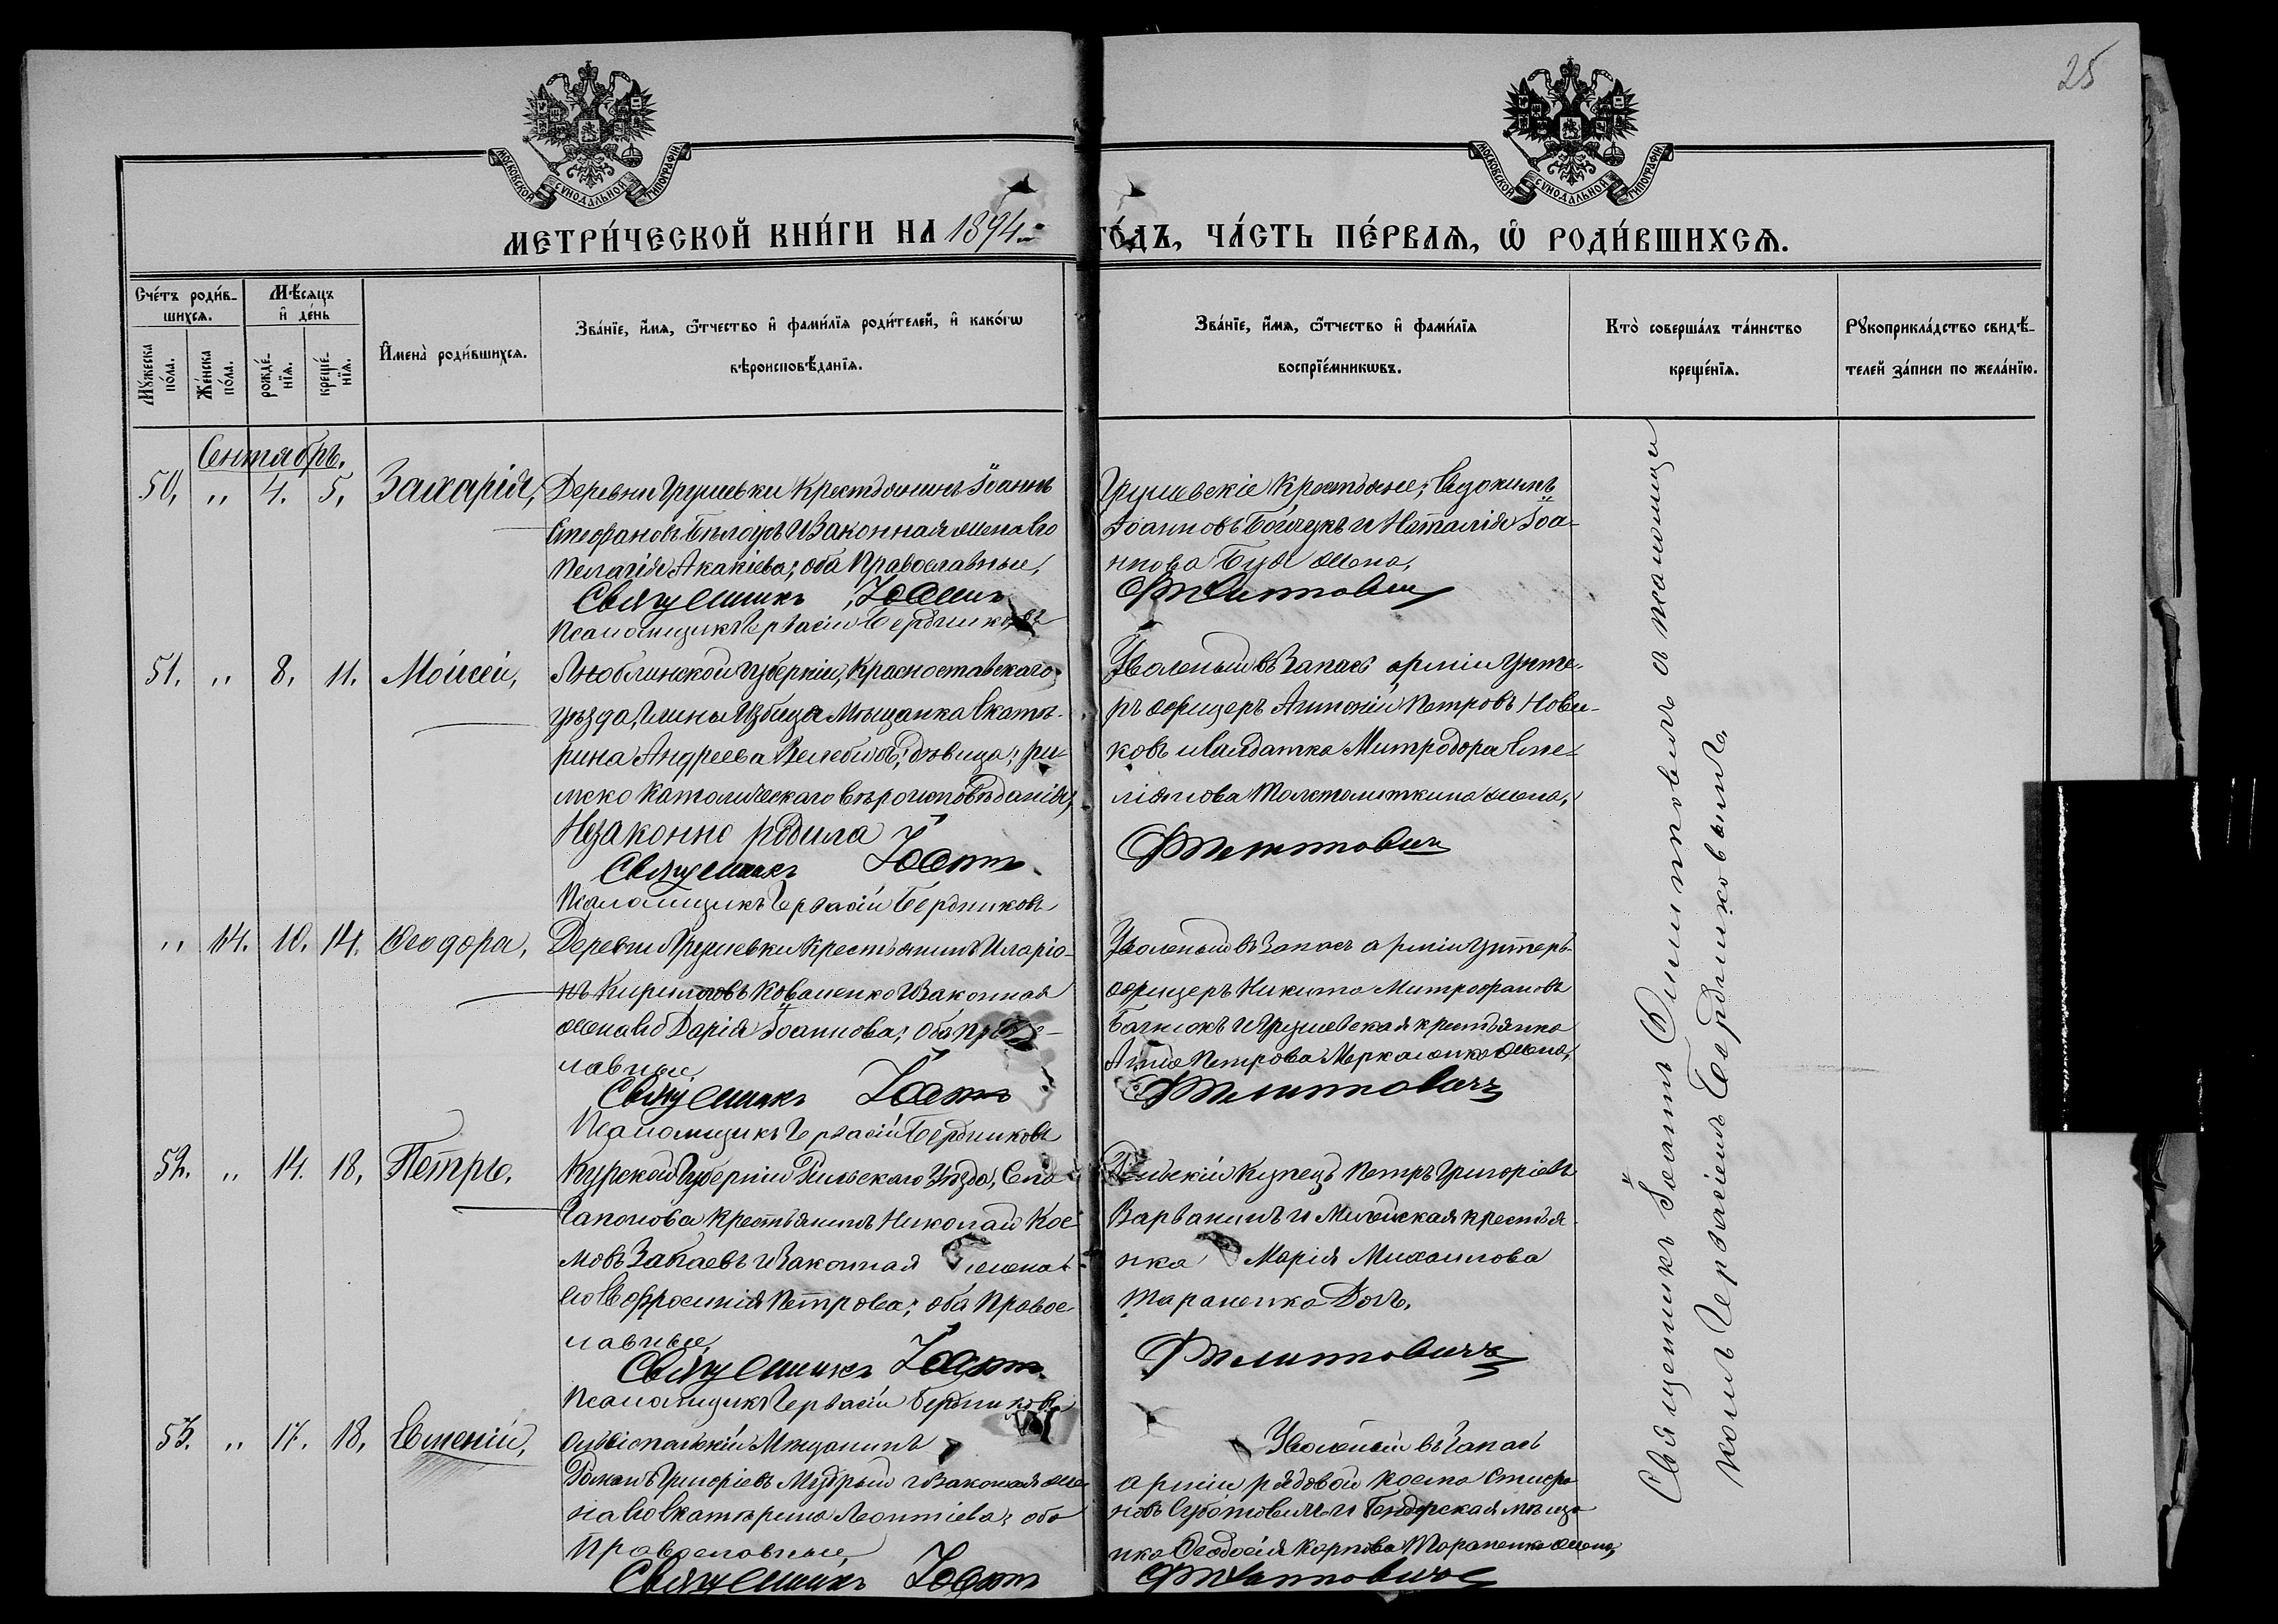 25
МОСКОВСКОЙ СУНОДАЛЬНОЙ ТИПОГРАФІИ
МОСКОВСКОЙ СУНОДАЛЬНОЙ ТИПОГРАФІИ
МЕТРИ́ЧЕСКОЙ КНИ́ГИ НА 1894 ГО́ДЪ, ЧА́СТЬ ПЕ́РВАѦ, Ѡ҆ РОДИ́ВШИХСѦ.
Сче́тъ роди́в-
шихсѧ.
Мѣ́сѧцъ
и҆ де́нь
Мꙋ́жеска
по́ла.
Же́нска
по́ла.
рожде́-
нїѧ.
креще́-
нїѧ.
И҆мена̀ роди́вшихсѧ.
Зва́нїе, и҆́мѧ, ѻ҆́тчество и҆ фами́лїѧ роди́телей, и҆ како́гѡ
вѣроисповѣ́данїѧ.
Зва́нїе, и҆́мѧ, ѻ҆́тчество и҆ фами́лїѧ
воспрїе́мникѡвъ.
Кто̀ соверша́лъ та́инство
креще́нїѧ.
Рꙋкоприкла́дство свидѣ́-
телей за́писи по жела́нїю.
Сентябрь.
50. " 4. 5. Захарія,
Деревни Грушевки Крестьянинъ Іоаннъ
Стефановъ Бѣлоусъ и Законная жена его
Пелагія Акакіева; оба Православные,
Священникъ Іоаннъ
Псаломщикъ Гервасій Бердниковъ
Грушевскіе Крестьяне; Евдокимъ
Іоанновъ Бойчукъ и Наталія Іоа-
ннова жена,
Филипповичъ
51. " 8. 11. Моисей,
Люблинской Губерніи, Красноставскаго
уѣзда, Гмины Избица Мѣщанка Екате-
рина Андреева дѣвица; Ри-
мско Католическаго вѣроисповѣданія,
Незаконно родила
Священникъ Іоаннъ
Псаломщикъ Гервасій Бердниковъ
Уволеный въ Запасъ арміи Унте-
ръ офицеръ Антоній Петровъ Нови-
ковъ и Солдатка Митродора Еме-
ліянова жена,
Филипповичъ
" 14. 10. 14. Ѳеодора,
Деревни Грушевки Крестьянинъ Иларіо-
нъ Кирилловъ Коваленко и Законная
жена его Дарія Іоаннова; оба Право-
славные
Священникъ Іоаннъ
Псаломщикъ Гервасій Бердниковъ
Уволеный въ Запасъ арміи Унтеръ-
офицеръ Никита Митрофановъ
и Грушевская крестьянка
Анна Петрова Меркаленко жена,
Филипповичъ
52. " 14. 18. Петръ.
Курской Губерніи Рыльскаго Уѣзда, Села
Сапогова Крестьянинъ Николай Кос-
мовъ Забаевъ и Законная жена
его Евфросинія Петрова; оба Правос-
лавные
Священникъ Іоаннъ
Псаломщикъ Гервасій Бердниковъ
Рыльскій Купецъ Петръ Григоріевъ
Варванинъ и крестья-
нка Марія Михаилова
Тараненко Дочь.
Филипповичъ
53. " 17. 18. Евменій,
Ольвіопольскій Мѣщанинъ
Романъ Григоріевъ Мудрый и Законная же-
на его Екатерина Леонтіева; оба
Православные,
Священникъ Іоаннъ
Уволеный въ Запасъ
арміи рядовой Косма Стефа-
новъ и Бендерская мѣща-
нка Ѳеодосія Карпова Тараненко жена,
Филипповичъ
Священникъ Іоаннъ Филипповичъ съ псаломщи-
комъ Гервасіемъ Бердниковымъ.